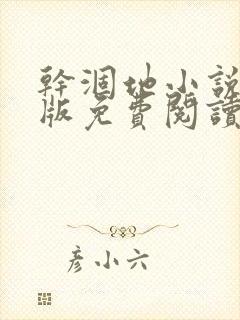 幹涸地小說
版免費閱讀
彥小六